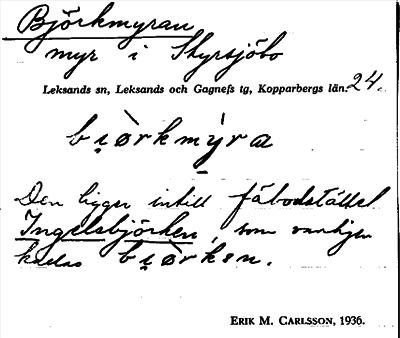 Björkmyran
myr i Styrsjöbo
Leksands sn, Leksands och Gagnefs tg, Kopparbergs län. 24.
bi̯òrkmýra
Den ligger intill fäbodstället
Ingelsbjörken, som vanligen
kallas bi̯òrkən.
ERIK M. CARLSSON, 1936.